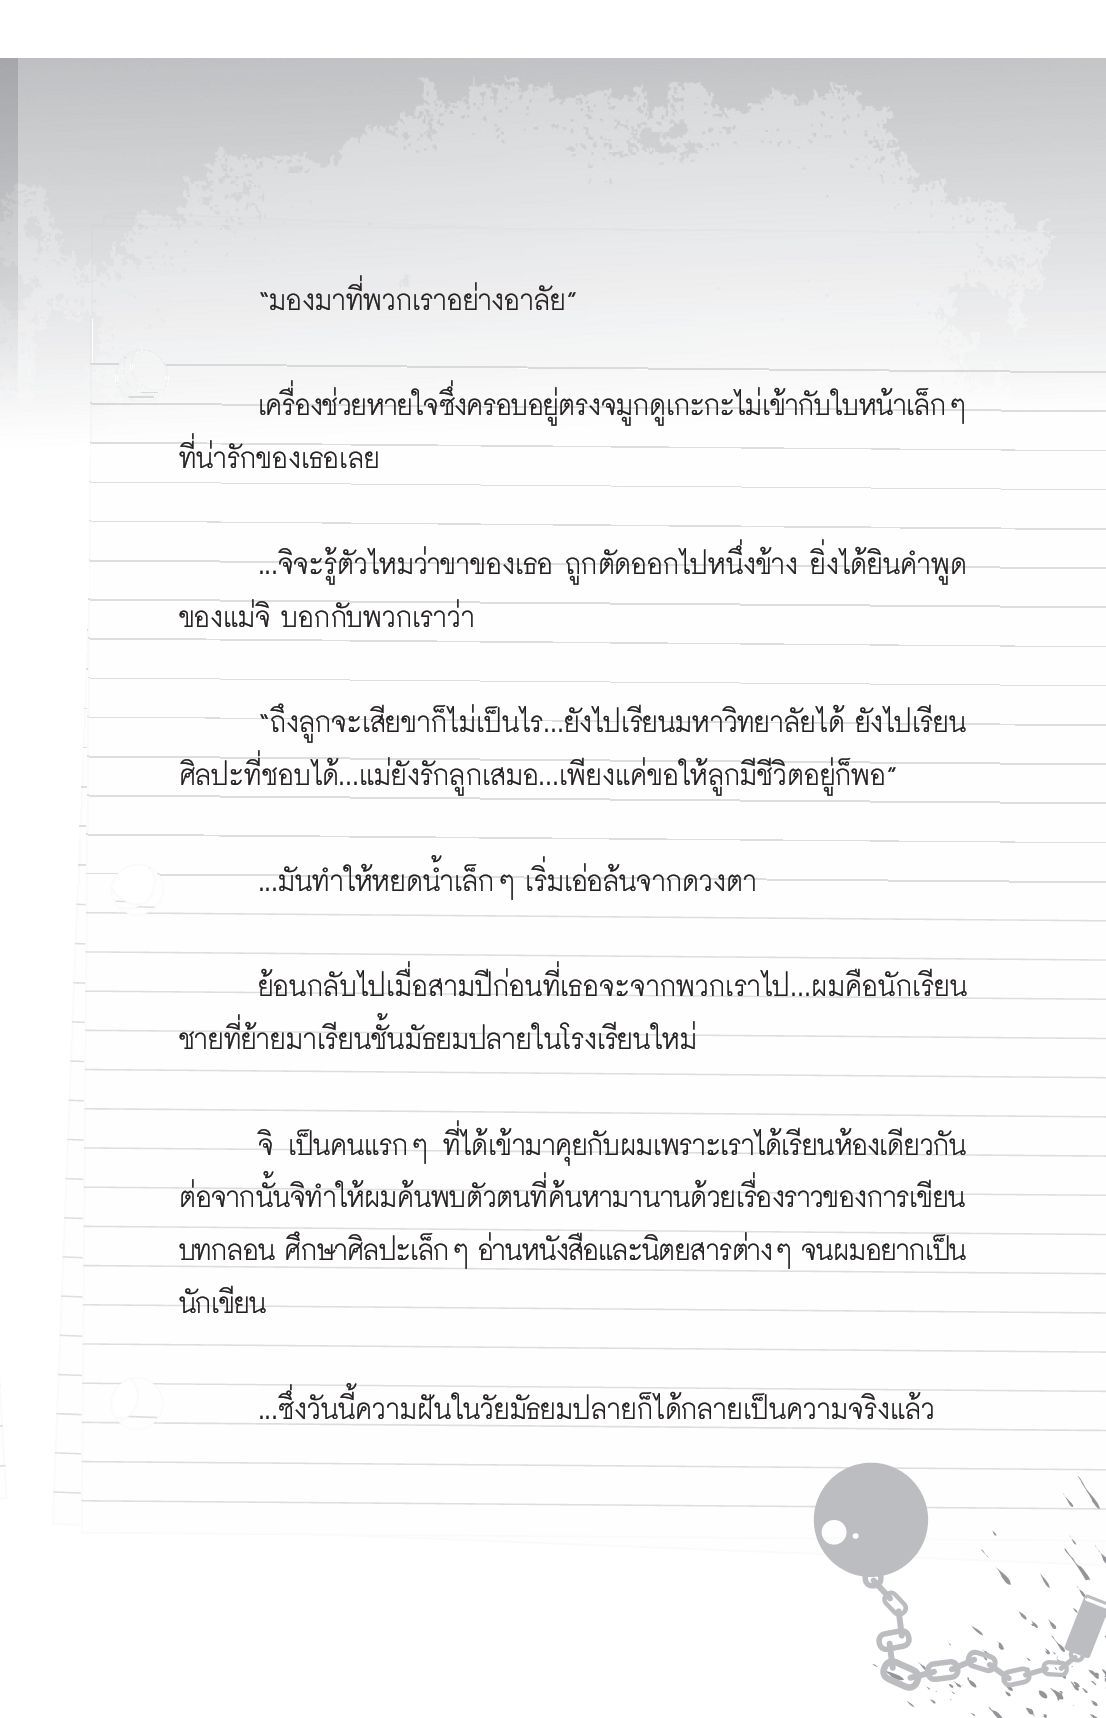 “มองมาที่พวกเราอย่างอาลัย”
เครื่องช่วยหายใจซึ่งครอบอยู่ตรงจมูกดูเกะกะไม่เข้ากับใบหน้าเล็กๆ
ที่น่ารักของเธอเลย
...จิจะรู้ตัวไหมว่าขาของเธอ ถูกตัดออกไปหนึ่งข้าง ยิ่งได้ยินคำพูด
ของแม่จิ บอกกับพวกเราว่า
“ถึงลูกจะเสียขาก็ไม่เป็นไร...ยังไปเรียนมหาวิทยาลัยได้ ยังไปเรียน
ศิลปะที่ชอบได้...แม่ยังรักลูกเสมอ...เพียงแค่ขอให้ลูกมีชีวิตอยู่ก็พอ”
...มันทำให้หยดน้ำเล็กๆ เริ่มเอ่อล้นจากดวงตา
ย้อนกลับไปเมื่อสามปีก่อนที่เธอจะจากพวกเราไป...ผมคือนักเรียน
ชายที่ย้ายมาเรียนชั้นมัธยมปลายในโรงเรียนใหม่
จิ เป็นคนแรกๆ ที่ได้เข้ามาคุยกับผมเพราะเราได้เรียนห้องเดียวกัน
ต่อจากนั้นจิทำให้ผมค้นพบตัวตนที่ค้นหามานานด้วยเรื่องราวของการเขียน
บทกลอน ศึกษาศิลปะเล็กๆ อ่านหนังสือและนิตยสารต่างๆ จนผมอยากเป็น
นักเขียน
...ซึ่งวันนี้ความฝันในวัยมัธยมปลายก็ได้กลายเป็นความจริงแล้ว